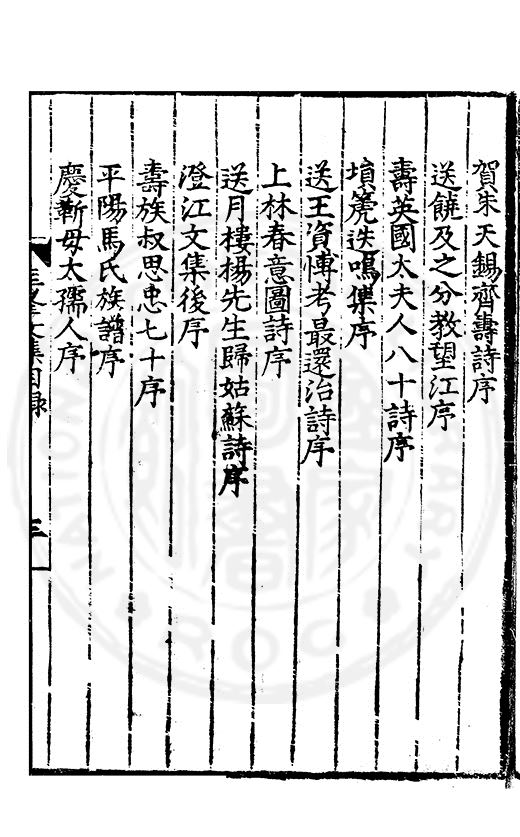 賀朱天錫齊壽詩序
送饒及之分教望江序
壽英國太夫人八十詩序
塤篪迭鳴集序
送王資愽考最還治詩序
上林春意圖詩序
送月樓楊先生歸姑蘇詩序
澄江文集後序
壽族叔思忠七十序
平陽馬氏族譜序
慶靳母太孺人序
文集目録
三